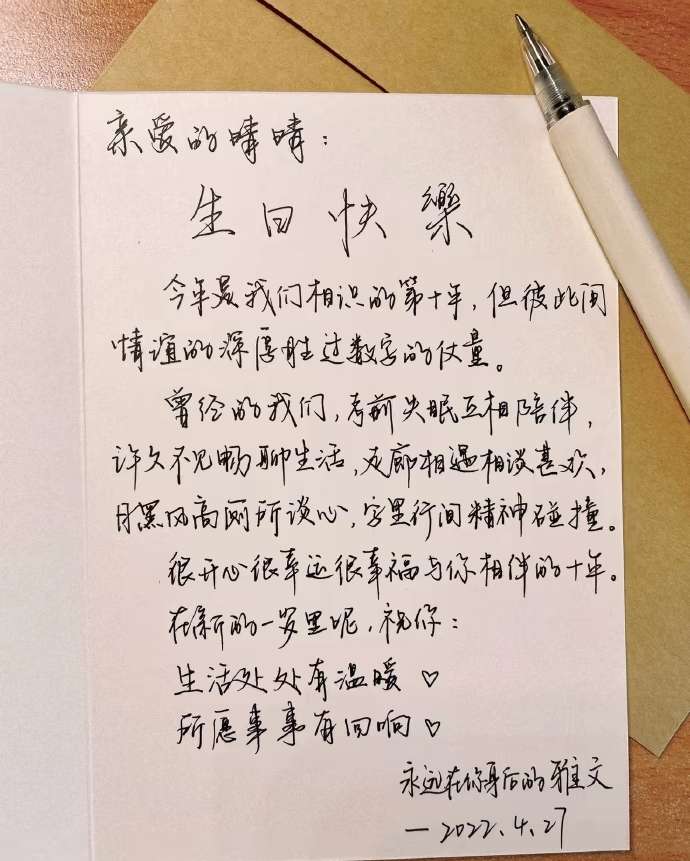 亲爱的晴晴：
生日快樂
今年是我们相识的第十年，但彼此间
情谊的深厚胜过数字的丈量。
曾经的我们，考前失眠互相陪伴，
许久不见畅聊生活，走廊相遇相谈甚欢，
月黑风高厕所谈心，字里行间精神碰撞。
很开心很幸运很幸福与你相伴的十年。
在新的一岁里呢，祝你：
生活处处有温暖♡
所愿事事有回响♡
永远在你身后的雅文
—2022.4.27